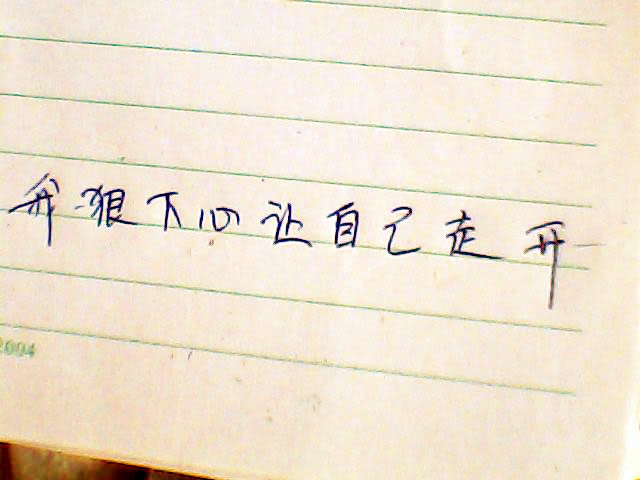 我狠下心让自己走开
2004